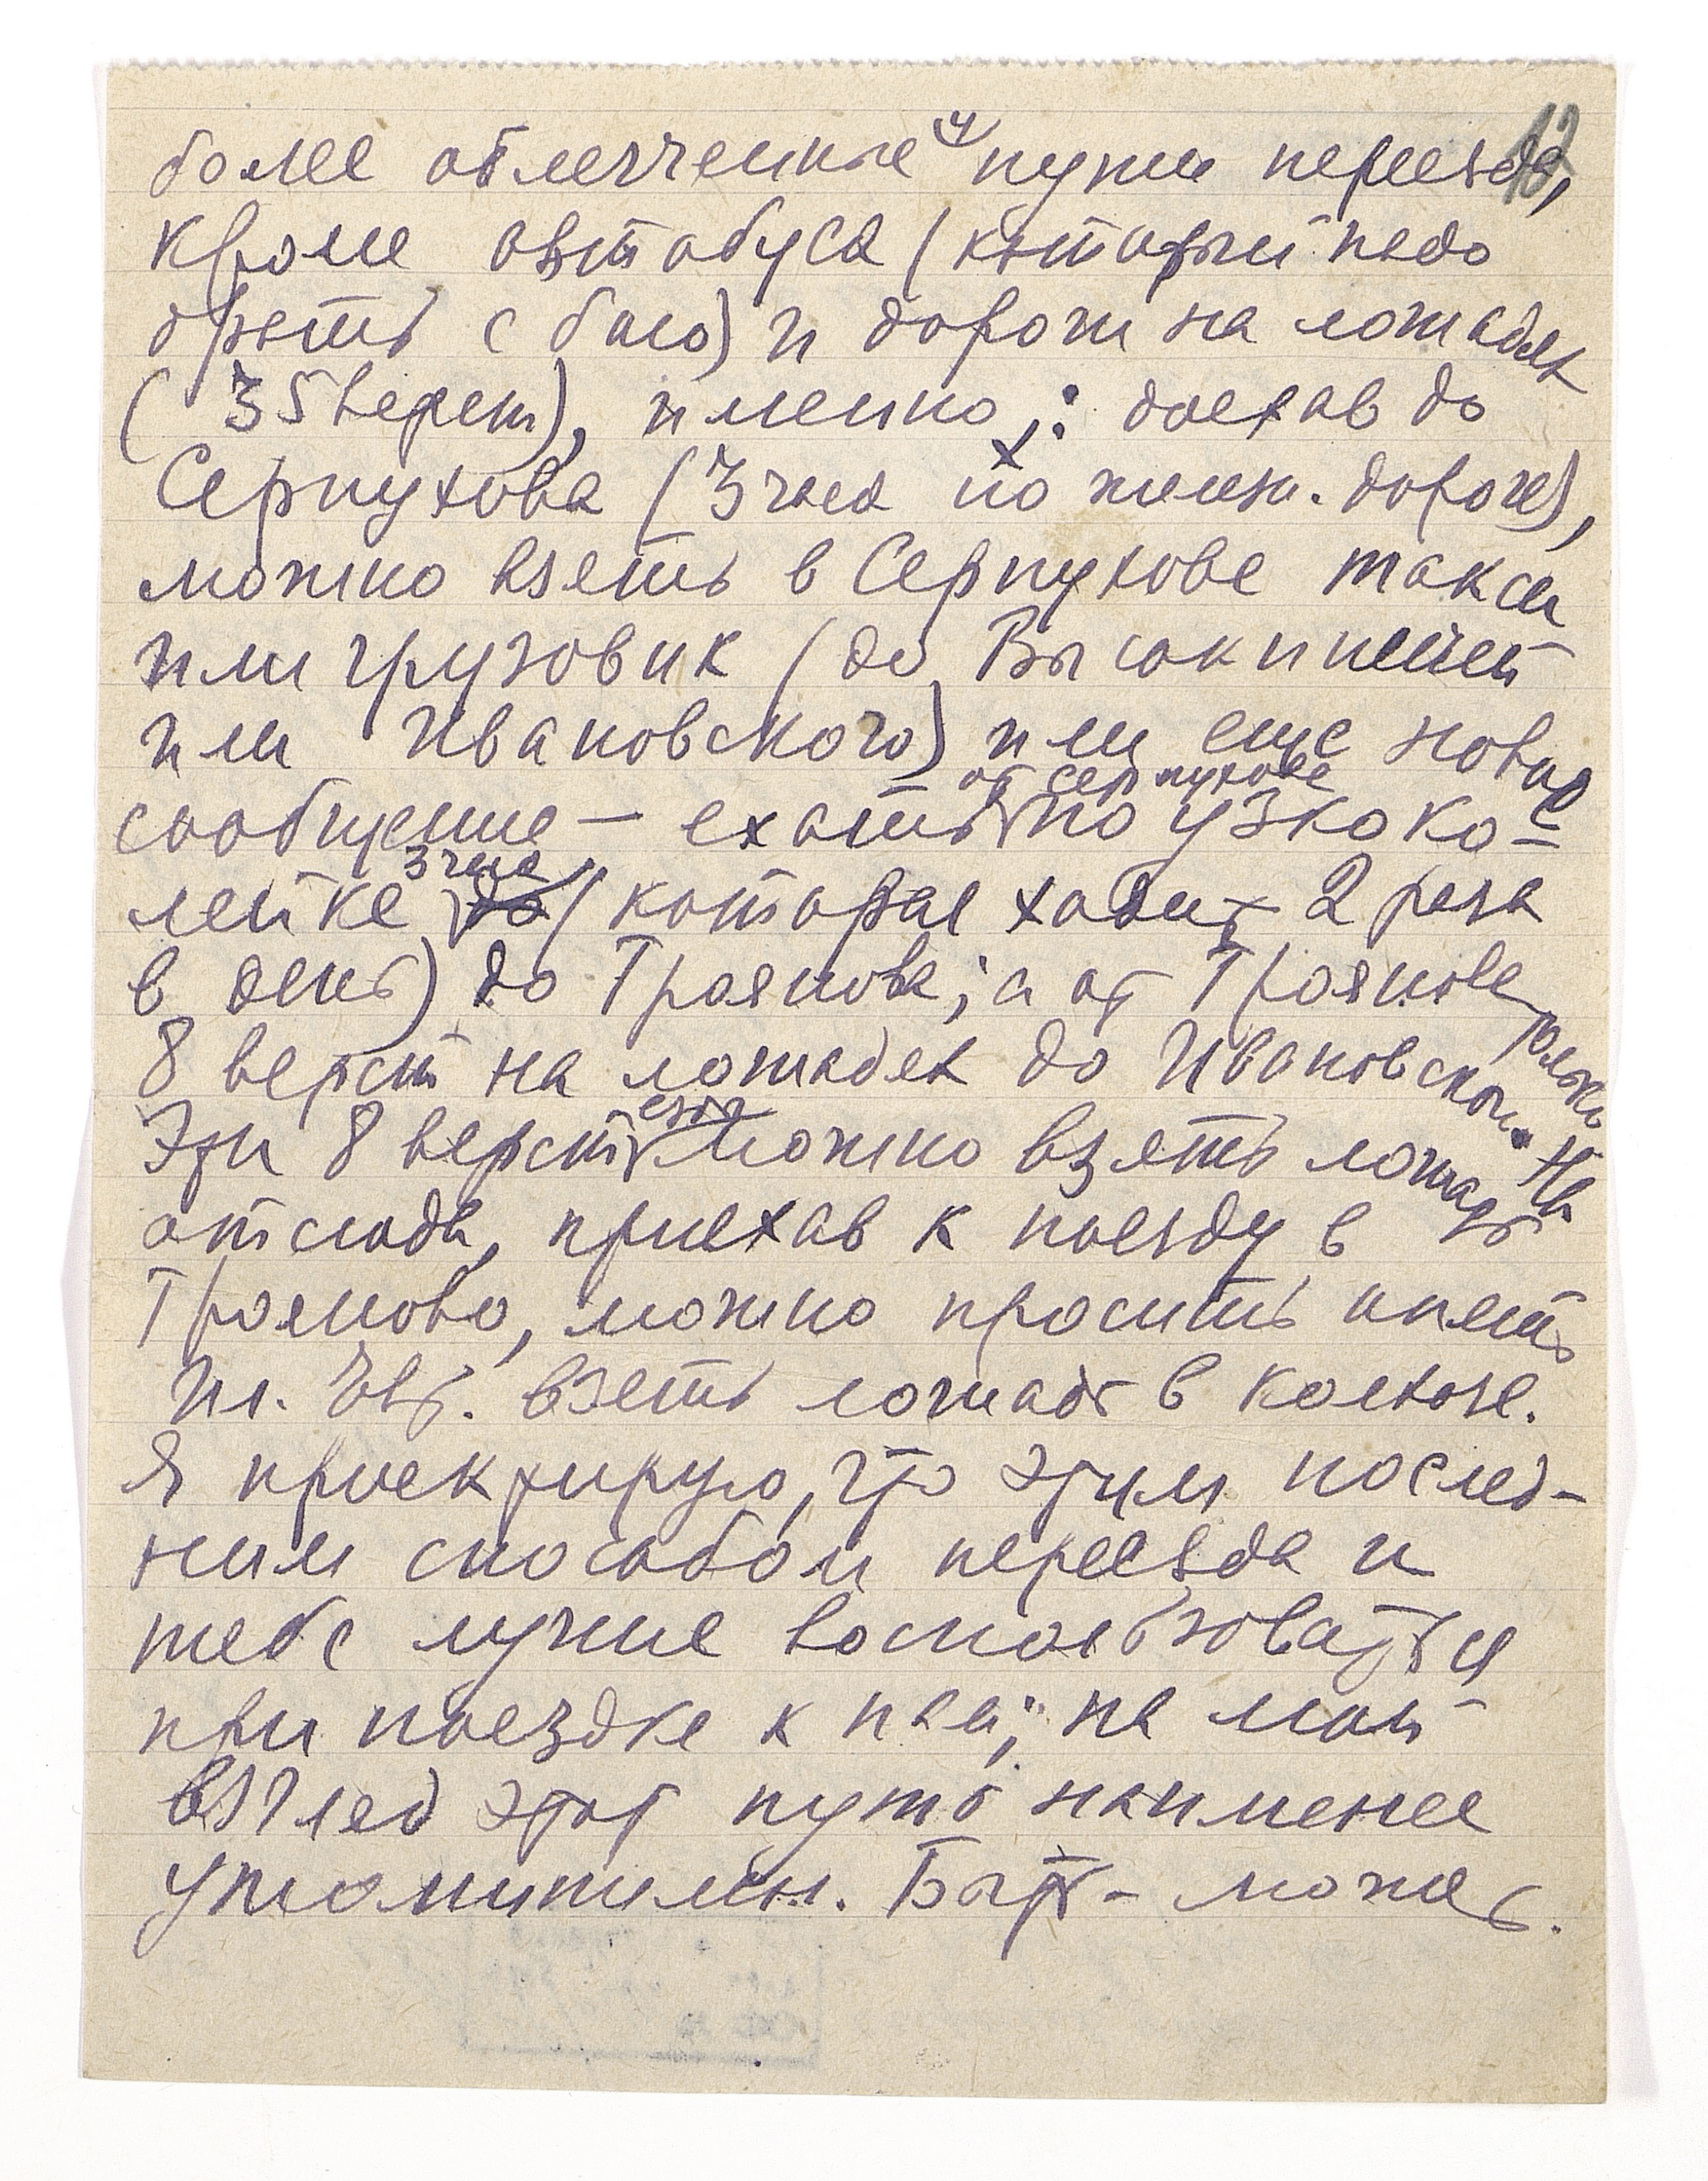 12
более облегченные пути переезда,
кроме автобуса (который надо
брать с бою) и дороги на лошадях
(35 верст), именно: доехав до
Серпухова (3 часа по желез. дороге),
можно взять в Серпухове такси
или грузовик (до Высокиничей
или Ивановского) или еще новое
от Серпухова
сообщение — ехать по узкоко-
3 часа
лейке (которая ходит 2 раза
в день) до Троянова; а от Троянова только
8 верст на лошадях до Ивановской. На
эти 8 верст можно взять лошадь
отсюда, приехав к поезду в
Трояново, можно просить опять
Ил. Ев. взять лошадь в колхозе.
Я проектирую, что этим послед-
ним способом переезда и
тебе лучше воспользоваться
при поездке к нам; на мой
взгляд этот путь наименее
утомителен. Быть-может.